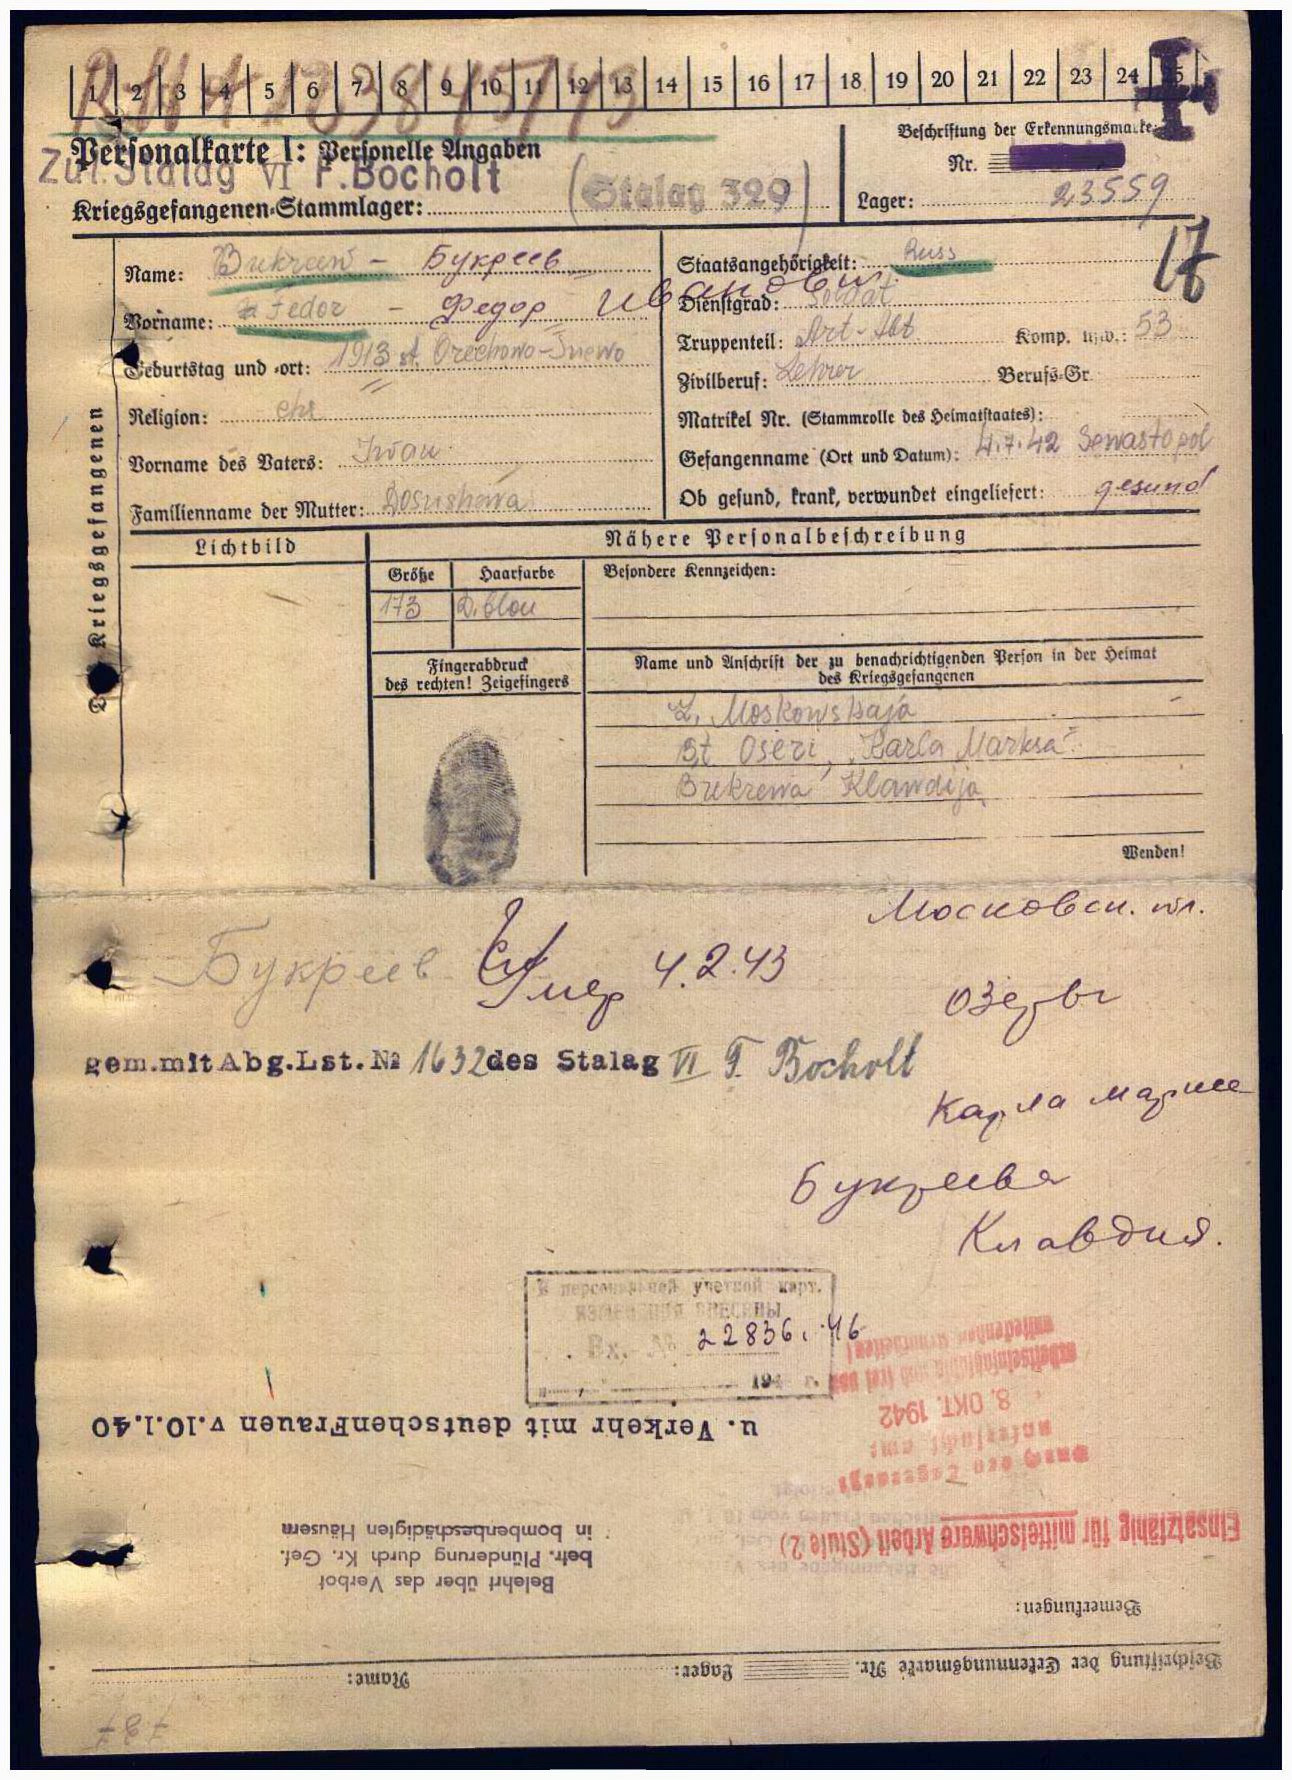 1 2 3 4 5 6 7 8 9 10 11 12 13 14 15 16 17 18 19 20 21 22 23 24 25
Personalkarte I: Personelle Angaben
Beschriftung der Erkennungsmarke
Nr.
Zul. Stalag VI F. Bocholt
(Stalag 329)
Kriegsgefangenen-Stammlager:
Lager: 23559
Des Kriegsgefangenen
Name: Bukreew – Букреев
Vorname: Fedor – Федор Иванович
Geburtstag und -ort: 1913 st. Orechowo-Suewo
Religion:
Vorname des Vaters: Iwan
Familienname der Mutter:
17
Staatsangehörigkeit: Russ
Dienstgrad: Soldat
Truppenteil: Art-Abt. Komp. usw.: 53
Zivilberuf: Lehrer Berufs-Gr.
Matrikel Nr. (Stammrolle des Heimatstaates):
Gefangenname (Ort und Datum): 4.7.42 Sewastopol
Ob gesund, krank, verwundet eingeliefert: gesund
Lichtbild
Nähere Personalbeschreibung
Größe Haarfarbe Besondere Kennzeichen:
173 D. blon
Fingerabdruck
des rechten! Zeigefingers
Name und Anschrift der zu benachrichtigenden Person in der Heimat
des Kriegsgefangenen
Moskowskaja
St. Oseri, "Karla Marksa"
Bukrewa Klawdija
Wenden!
Московск. ил.
Букреев Умер 4.2.43
Озеры
gem. mit Abg. Lst. № 1632 des Stalag VI F. Bocholt
Карла Маркса
Букреева
Клавдия.
В персональной учетной карт.
изменения внесены
Вх. № 22836. 46
194 г.
8. OKT. 1942
u. Verkehr mit deutschen Frauen v. 10.1.40
Einsatzfähig für mittelschwere Arbeit (Stufe 2)
Belehrt über das Verbot
betr. Plünderung durch Kr. Gef.
in bombenbeschädigten Häusern
Bemerkungen:
Beschriftung der Erkennungsmarke Nr. Lager: Name:
787